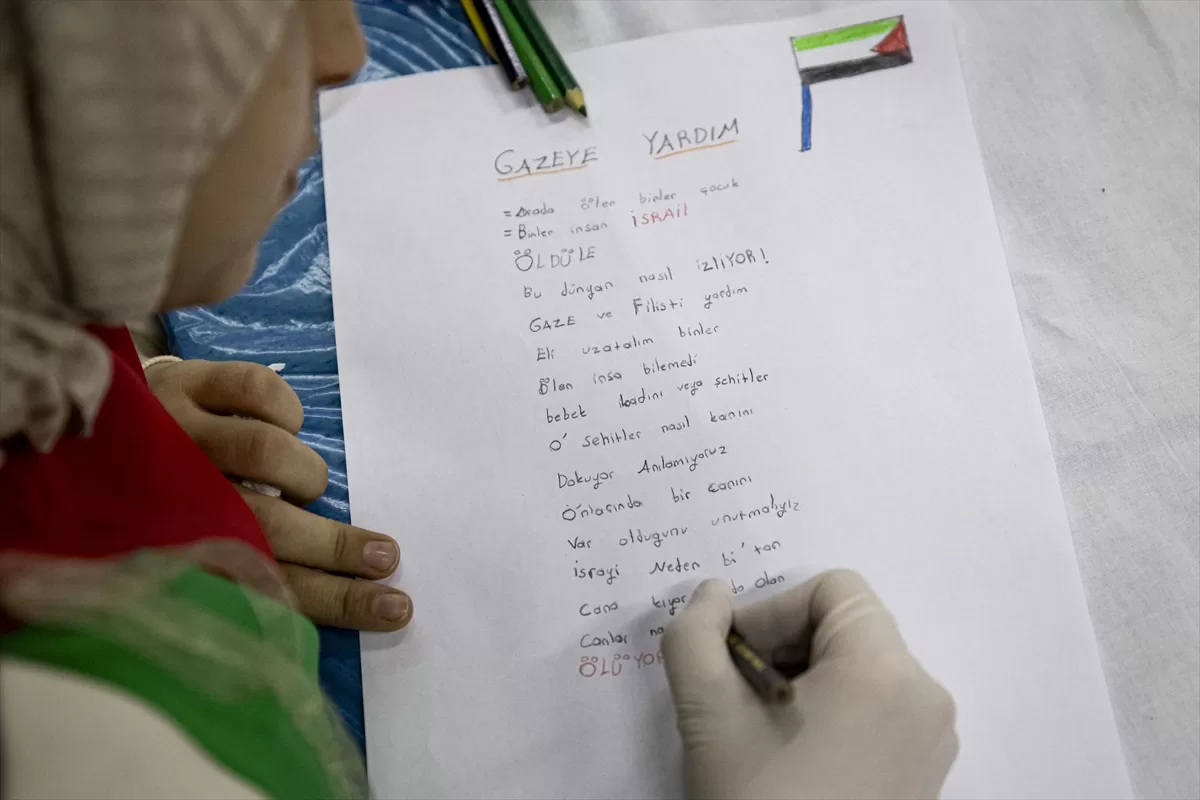 GAZEYE YARDIM
= Arada ölen binler çocuk
= Binler insan İSRAİl
ÖLDÜLE
Bu dünyan nasıl İZLİYOR!
GAZE ve Filisti yardım
Eli uzatalım binler
Ölen insa bilemedi
bebek kadını veya şehitler
O' Sehitler nasıl kanını
Dokuyor Anılamıyoruz
O'nlasında bir canını
Var olduguno unutmalıyız
İsrayi Neden bi' tan
Cana kıyor da olan
Canlar na
ÖLÜYOR